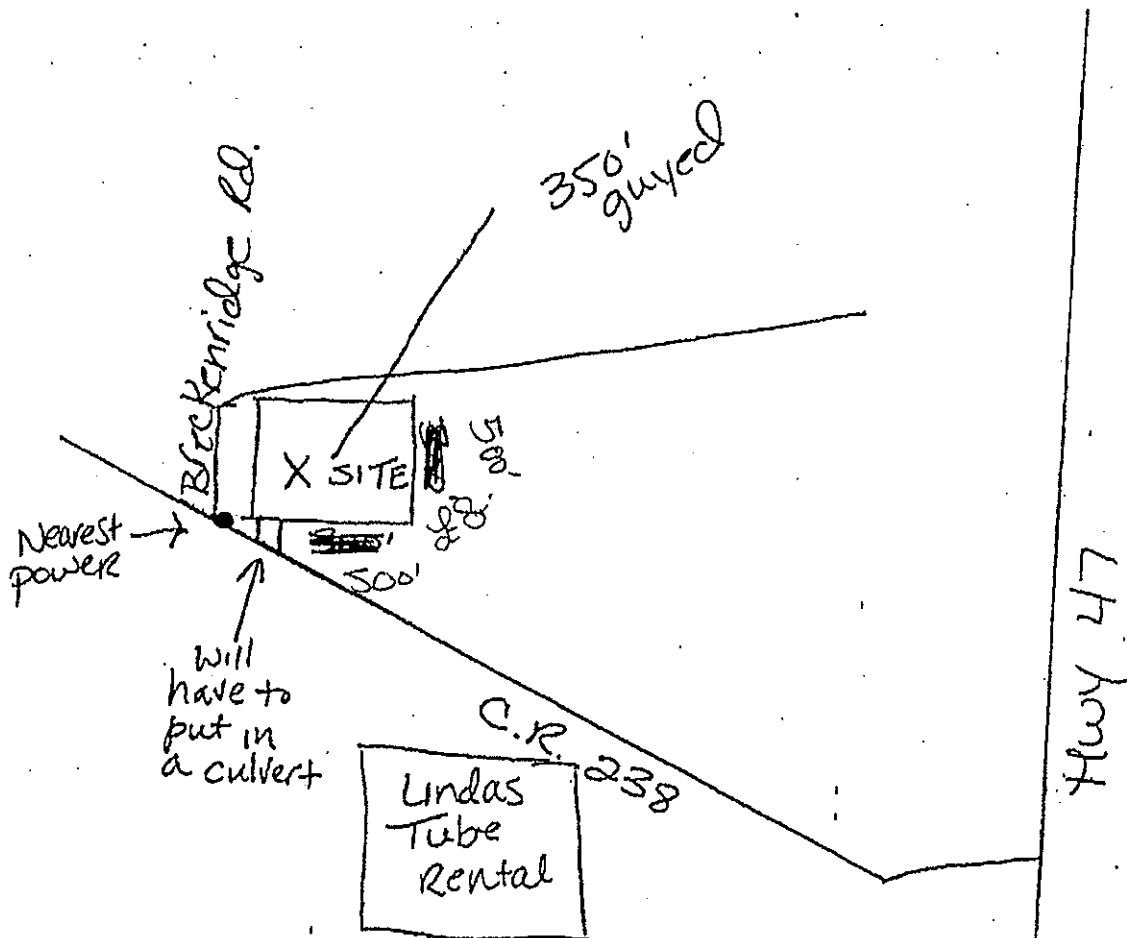 350'
guyed
Breckenridge Rd.
X SITE
500'
500'
Nearest
power
will
have to
put in
a culvert
C.R. 238
Lindas
Tube
Rental
Hwy 47